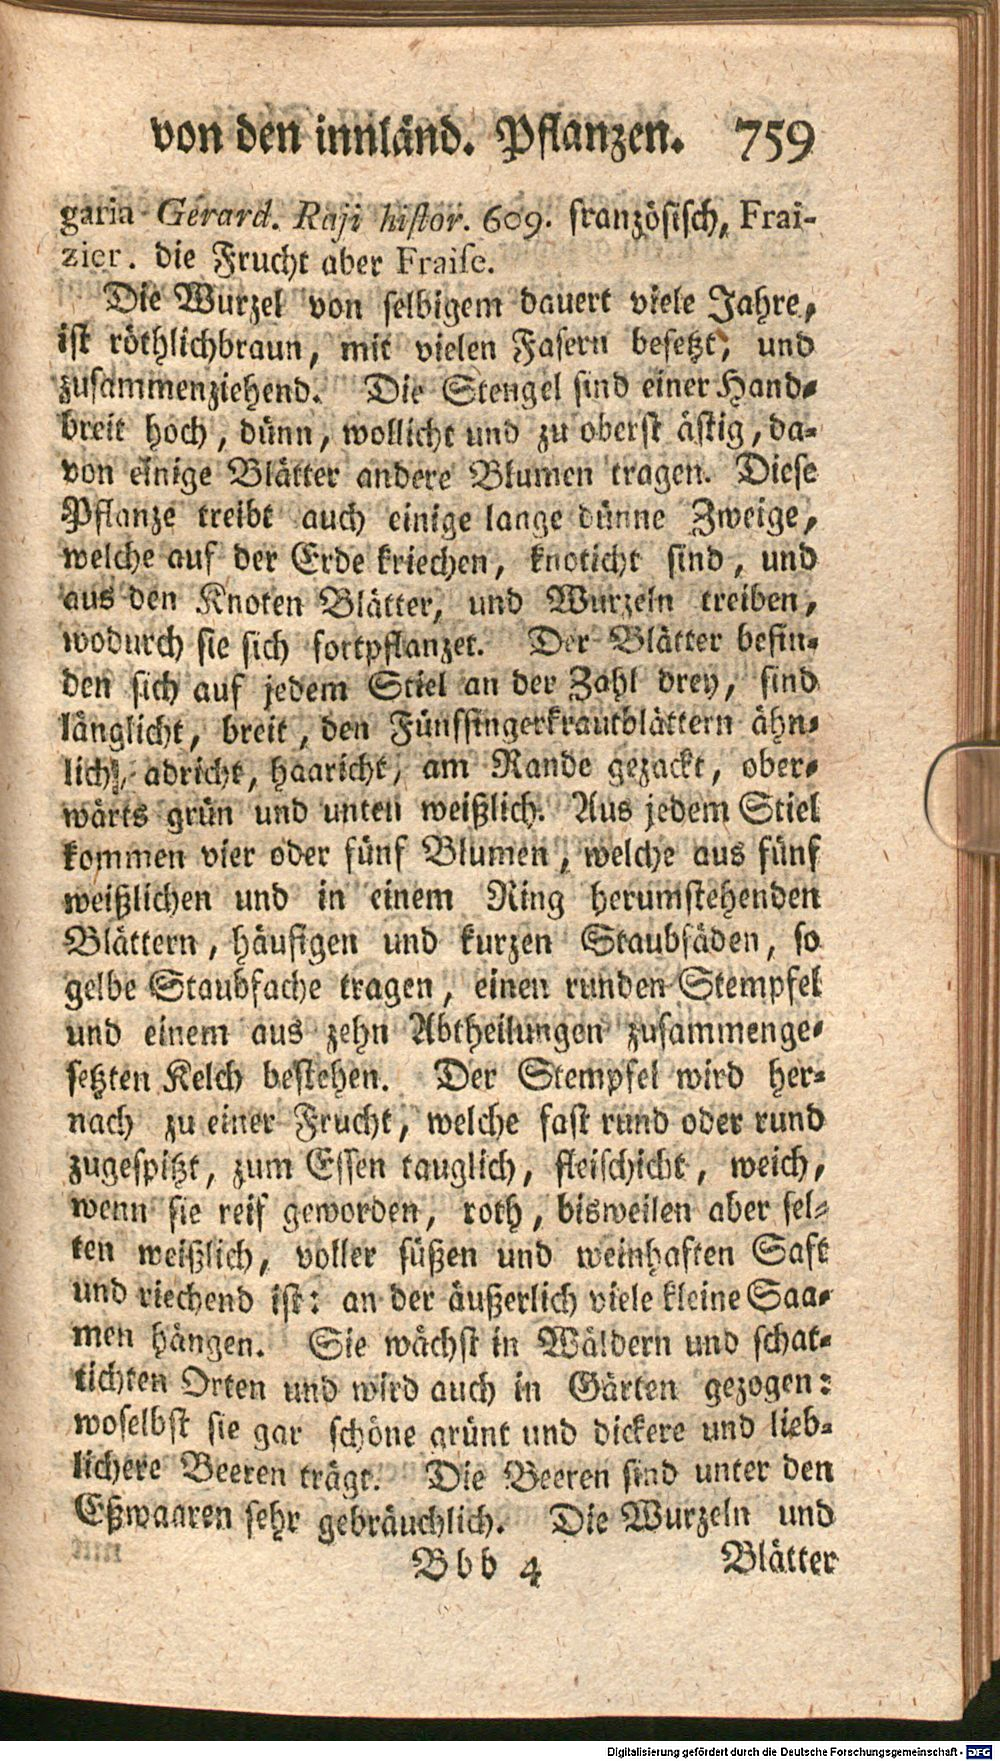 von den innländ. Pflanzen. 759
garia Gerard. Raji histor. 609. französisch, Frai-
zier. die Frucht aber Fraise.
Die Wurzel von selbigem dauert viele Jahre,
ist röthlichbraun, mit vielen Fasern besetzt, und
zusammenziehend. Die Stengel sind einer Hand-
breit hoch, dünn, wollicht und zu oberst ästig, da-
von einige Blätter andere Blumen tragen. Diese
Pflanze treibt auch einige lange dünne Zweige,
welche auf der Erde kriechen, knoticht sind, und
aus den Knoten Blätter, und Wurzeln treiben,
wodurch sie sich fortpflanzet. Der Blätter befin-
den sich auf jedem Stiel an der Zahl drey, sind
länglicht, breit, den Fünffingerkrautblättern ähn-
lich, adricht, haaricht, am Rande gezackt, ober-
wärts grün und unten weißlich. Aus jedem Stiel
kommen vier oder fünf Blumen, welche aus fünf
weißlichen und in einem Ring herumstehenden
Blättern, häufigen und kurzen Staubfäden, so
gelbe Staubfache tragen, einen runden Stempfel
und einem aus zehn Abtheilungen zusammenge-
setzten Kelch bestehen. Der Stempfel wird her-
nach zu einer Frucht, welche fast rund oder rund
zugespitzt, zum Essen tauglich, fleischicht, weich,
wenn sie reif geworden, roth, bisweilen aber sel-
ten weißlich, voller süßen und weinhaften Saft
und riechend ist: an der äußerlich viele kleine Saa-
men hängen. Sie wächst in Wäldern und schat-
tichten Orten und wird auch in Gärten gezogen:
woselbst sie gar schöne grünt und dickere und lieb-
lichere Beeren trägt. Die Beeren sind unter den
Eßwaaren sehr gebräuchlich. Die Wurzeln und
Bbb 4 Blätter
Digitalisierung gefördert durch die Deutsche Forschungsgemeinschaft - DFG